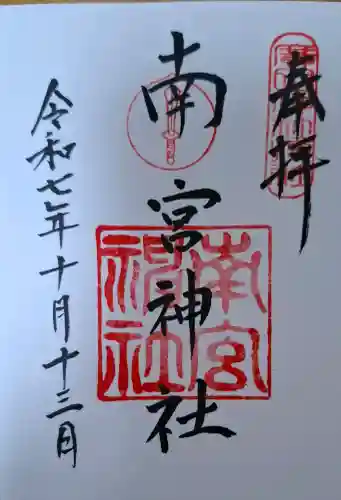 奉拝
南宮神社
南宮
神社
令和七年十月十三日